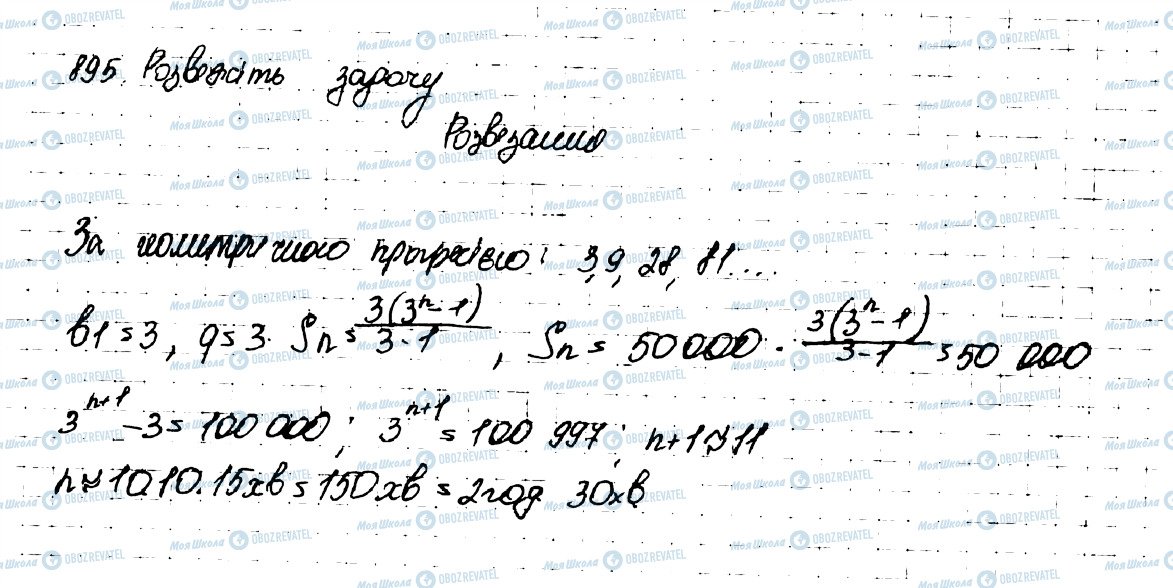 895. Розвежіть задачу
Розвезання
За геометричною прогресією: 3, 9, 28, 81....
b1 = 3, q = 3. Sn = 3(3^n - 1) / 3 - 1, Sn = 50 000. 3(3^n - 1) / 3 - 1 = 50 000
3^n+1 - 3 = 100 000; 3^n+1 = 100 997; n+1 ≈ 11
n ≈ 10 10.15хв = 150хв = 2год 30хв
Моя Школа OBOZREVATEL